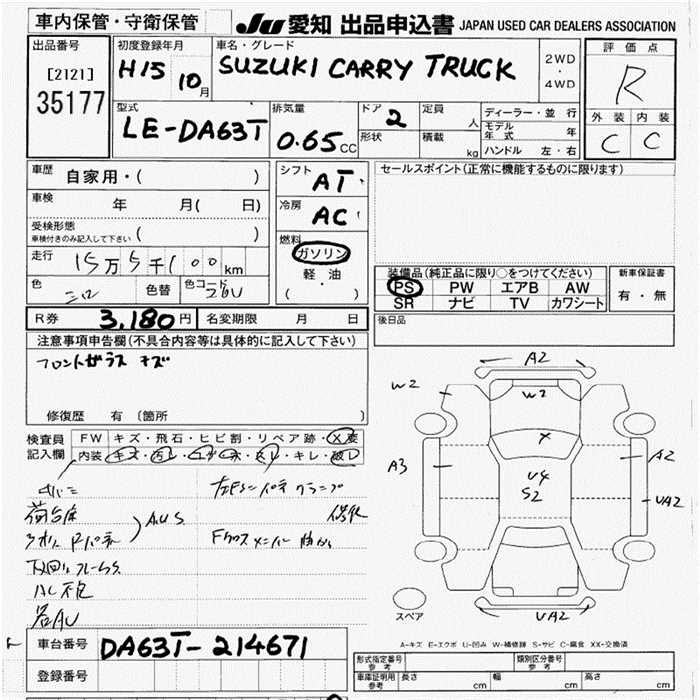 車内保管・守衛保管
JU 愛知 出品申込書 JAPAN USED CAR DEALERS ASSOCIATION
出品番号
[2121]
35177
初度登録年月
H15 10月
車名・グレード
SUZUKI CARRY TRUCK
2WD
・
4WD
評価点
R
外装 内装
C C
型式
LE-DA63T
排気量
0.65 CC
ドア 2
形状
定員 人
積載 kg
ディーラー・並行
モデル年式 年
ハンドル 左・右
車歴 自家用・( )
車検 年 月( 日)
受検形態
車検付きのみ記入して下さい ( )
走行 15万5千100km
色 色替 色コード 26U
シフト AT
冷房 AC
燃料
ガソリン
軽・油
( ・ )
セールスポイント(正常に機能するものに限ります)
装備品(純正品に限り○をつけてください)
PS PW エアB AW
SR ナビ TV カワシート
新車保証書
有・無
R券 3,180円 名変期限 月 日
後日品
注意事項申告欄(不具合内容等は具体的に記入して下さい)
フロントガラス キズ
修復歴 有 (箇所 )
検査員記入欄
FW キズ・飛石・ヒビ割・リペア跡・X要
内装
キレ・破レ
AUS
Fクロスメンバー曲がり
各AU
A2
W2
W2
X
A3
U4
S2
A2
UA2
UA2
スペア
A-キズ E-エクボ U-凹み W-補修跡 S-サビ C-腐食 XX-交換済
車台番号 DA63T-214671
登録番号
形式指定番号 参考
類別区分番号 参考
車庫証明用 参考
長さ cm 幅 cm 高さ cm